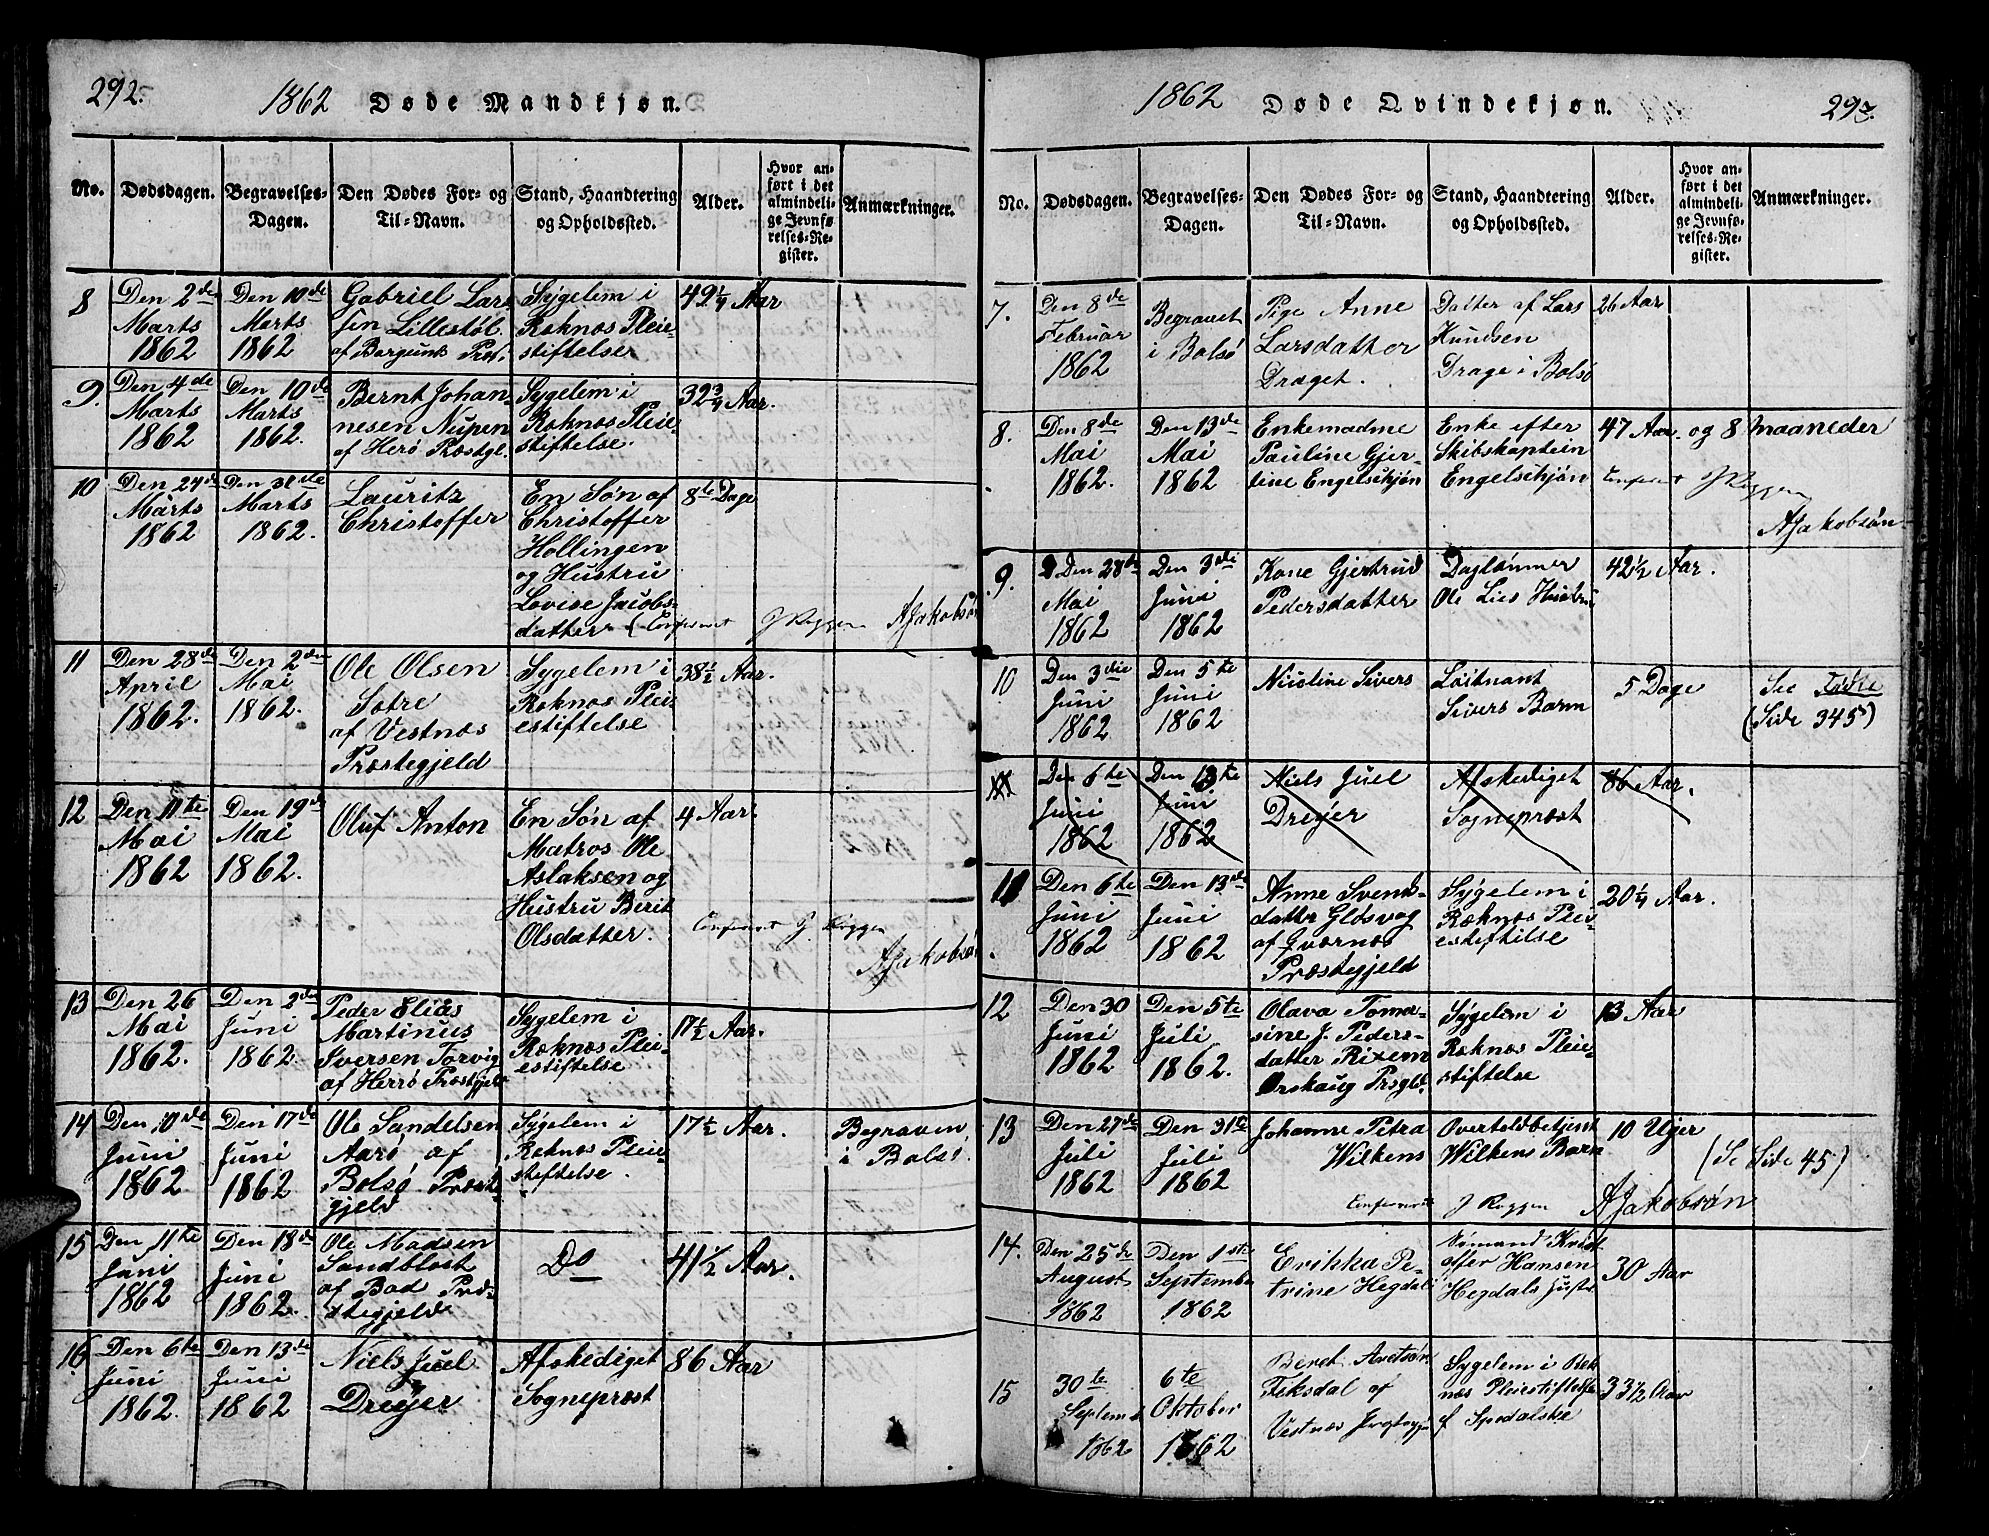 292.
1862 Døde Mandkjøn.
No. Dødsdagen. Begravelses-Dagen. Den Dødes For- og Til-Navn. Stand, Haandtering og Opholdssted. Alder. Hvor anført i det almindelige Jevnførelses-Register. Anmærkninger.
8 Den 2de Marts 1862 Den 10de Marts 1862 Gabriel Larsen Lillestøl af Borgunds Prest. Sygelem i Reknæs Pleiestiftelse 42 1/4 Aar
9. Den 4de Marts 1862 Den 10de Marts 1862. Bernt Johannesen Nupen af Herø Præstgl. Sygelem i Reknæs Pleiestiftelse. 32 3/4 Aar.
10 Den 24de Marts 1862 Den 31te Marts 1862. Lauritz Christoffer En Søn af Christoffer Hollingen og Hustru Lovise Jacobsdatter 8te Dage
Confereret J Roggen AJakobsøn
11 Den 28de April 1862. Den 2den Mai 1862. Ole Olsen Sotre af Vestnæs Præstegjeld Sygelem i Reknæs Pleiestiftelse 38 1/2 Aar.
12 Den 11te Mai 1862 Den 19de Mai 1862. Oluf Anton En Søn af Matros Ole Aslaksen og Hustru Berit Olsdatter. 4 Aar.
Confereret J. Roggen
AJakobsøn
13 Den 26 Mai 1862. Den 2den Juni 1862. Peder Elias Martinus Iversen Torvig af Herrø Præstgjeld Sygelem i Reknæs Pleiestiftelse 17 1/2 Aar.
14 Den 10de Juni 1862 Den 17de Juni 1862 Ole Sandelsen Aarø af Bolsø Præstgjeld Sygelem i Reknæs Pleiestiftelse. 17 1/2 Aar. Begraven i Bolsø.
15 Den 11te Juni 1862 Den 18de Juni 1862. Ole Madsen Sandblost af Bod Præstegjeld Do 41 1/2 Aar.
16 Den 6te Juni 1862. Den 13de Juni 1862 Niels Juel Dreyer Afskediget Sognepræst 86 Aar
1862 Døde Qvindekjøn.
293.
No. Dødsdagen. Begravelses-Dagen. Den Dødes For- og Til-Navn. Stand, Haandtering og Opholdssted. Alder. Hvor anført i det almindelige Jevnførelses-Register. Anmærkninger.
7. Den 8de Februar 1862 Begravet i Bolsø Pige Anne Larsdatter Draget. Datter af Lars Knudsen Drage i Bolsø 26 Aar
8. Den 8de Mai 1862. Den 13de Mai 1862 Enkemadme Pauline Gjertine Engelschjøn Enke efter Skibskaptein Engelschjøn 47 Aar og 8 Maaneder
Confereret J Roggen
AJakobsøn
9. Den 28de Mai 1862 Den 3die Juni 1862 Kone Gjertrud Pedersdatter Daglønner Ole Lies Hustru 42 1/2 Aar.
10 Den 3die Juni 1862 Den 5te Juni 1862 Nicoline Sivers Løitnant Sivers Barn 5 Dage See (Side 345)
11 Den 6te Juni 1862 Den 13te Juni 1862 Niels Juel Dreyer Afskediget Sognepræst 86 Aar.
11 Den 6te Juni 1862 Den 13de Juni 1862 Anne Svendsdatter Gløsvog af Qværnæs Præstegjeld Sygelem i Reknæs Pleiestiftelse 20 1/4 Aar.
12 Den 30 Juni 1862 Den 5te Juli 1862. Olava Tomasine J. Pedersdatter Rixem Ørskaug Præstgld. Sygelem i Reknæs Pleiestiftelse 13 Aar
13 Den 27de Juli 1862 Den 31te Juli 1862 Johanne Petra Wilkens Overtoldbetjent Wilkens Barn 10 Uger (Se Side 45)
Confereret J Roggen AJakobsøn
14. Den 25de August 1862 Den 1ste September 1862 Erikka Petrine Hegdal Sømand Kristoffer Hansen Hegdals Hustr 30 Aar
15 30te Septemb 1862 6te Oktober 1862 Beret Aretsøn Fiksdal af Vestnæs Sygelem i Reknæs Pleiestiftelse f Spedalske 33 1/2 Aar